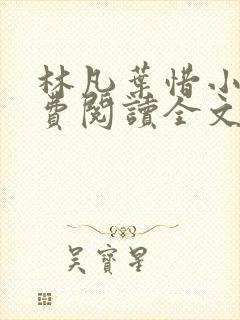 林凡葉惜小
費閱讀全文
吳寶星